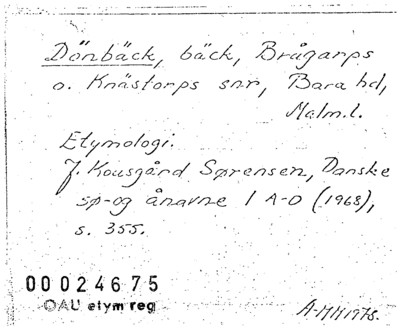 Dönbäck, bäck, Brågarps
o. Knästorps snr, Bara hd,
Malm.l.
Etymologi.
J. Kousgård Sørensen, Danske
sø-og ånavne 1 A-D (1968),
s. 355.
00024675
OAU etym reg